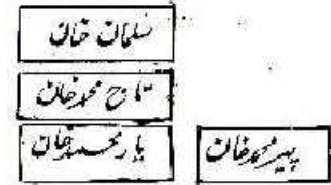 سلمان خان
تاج محمد خان
یار محمد خان
پیر محمد خان